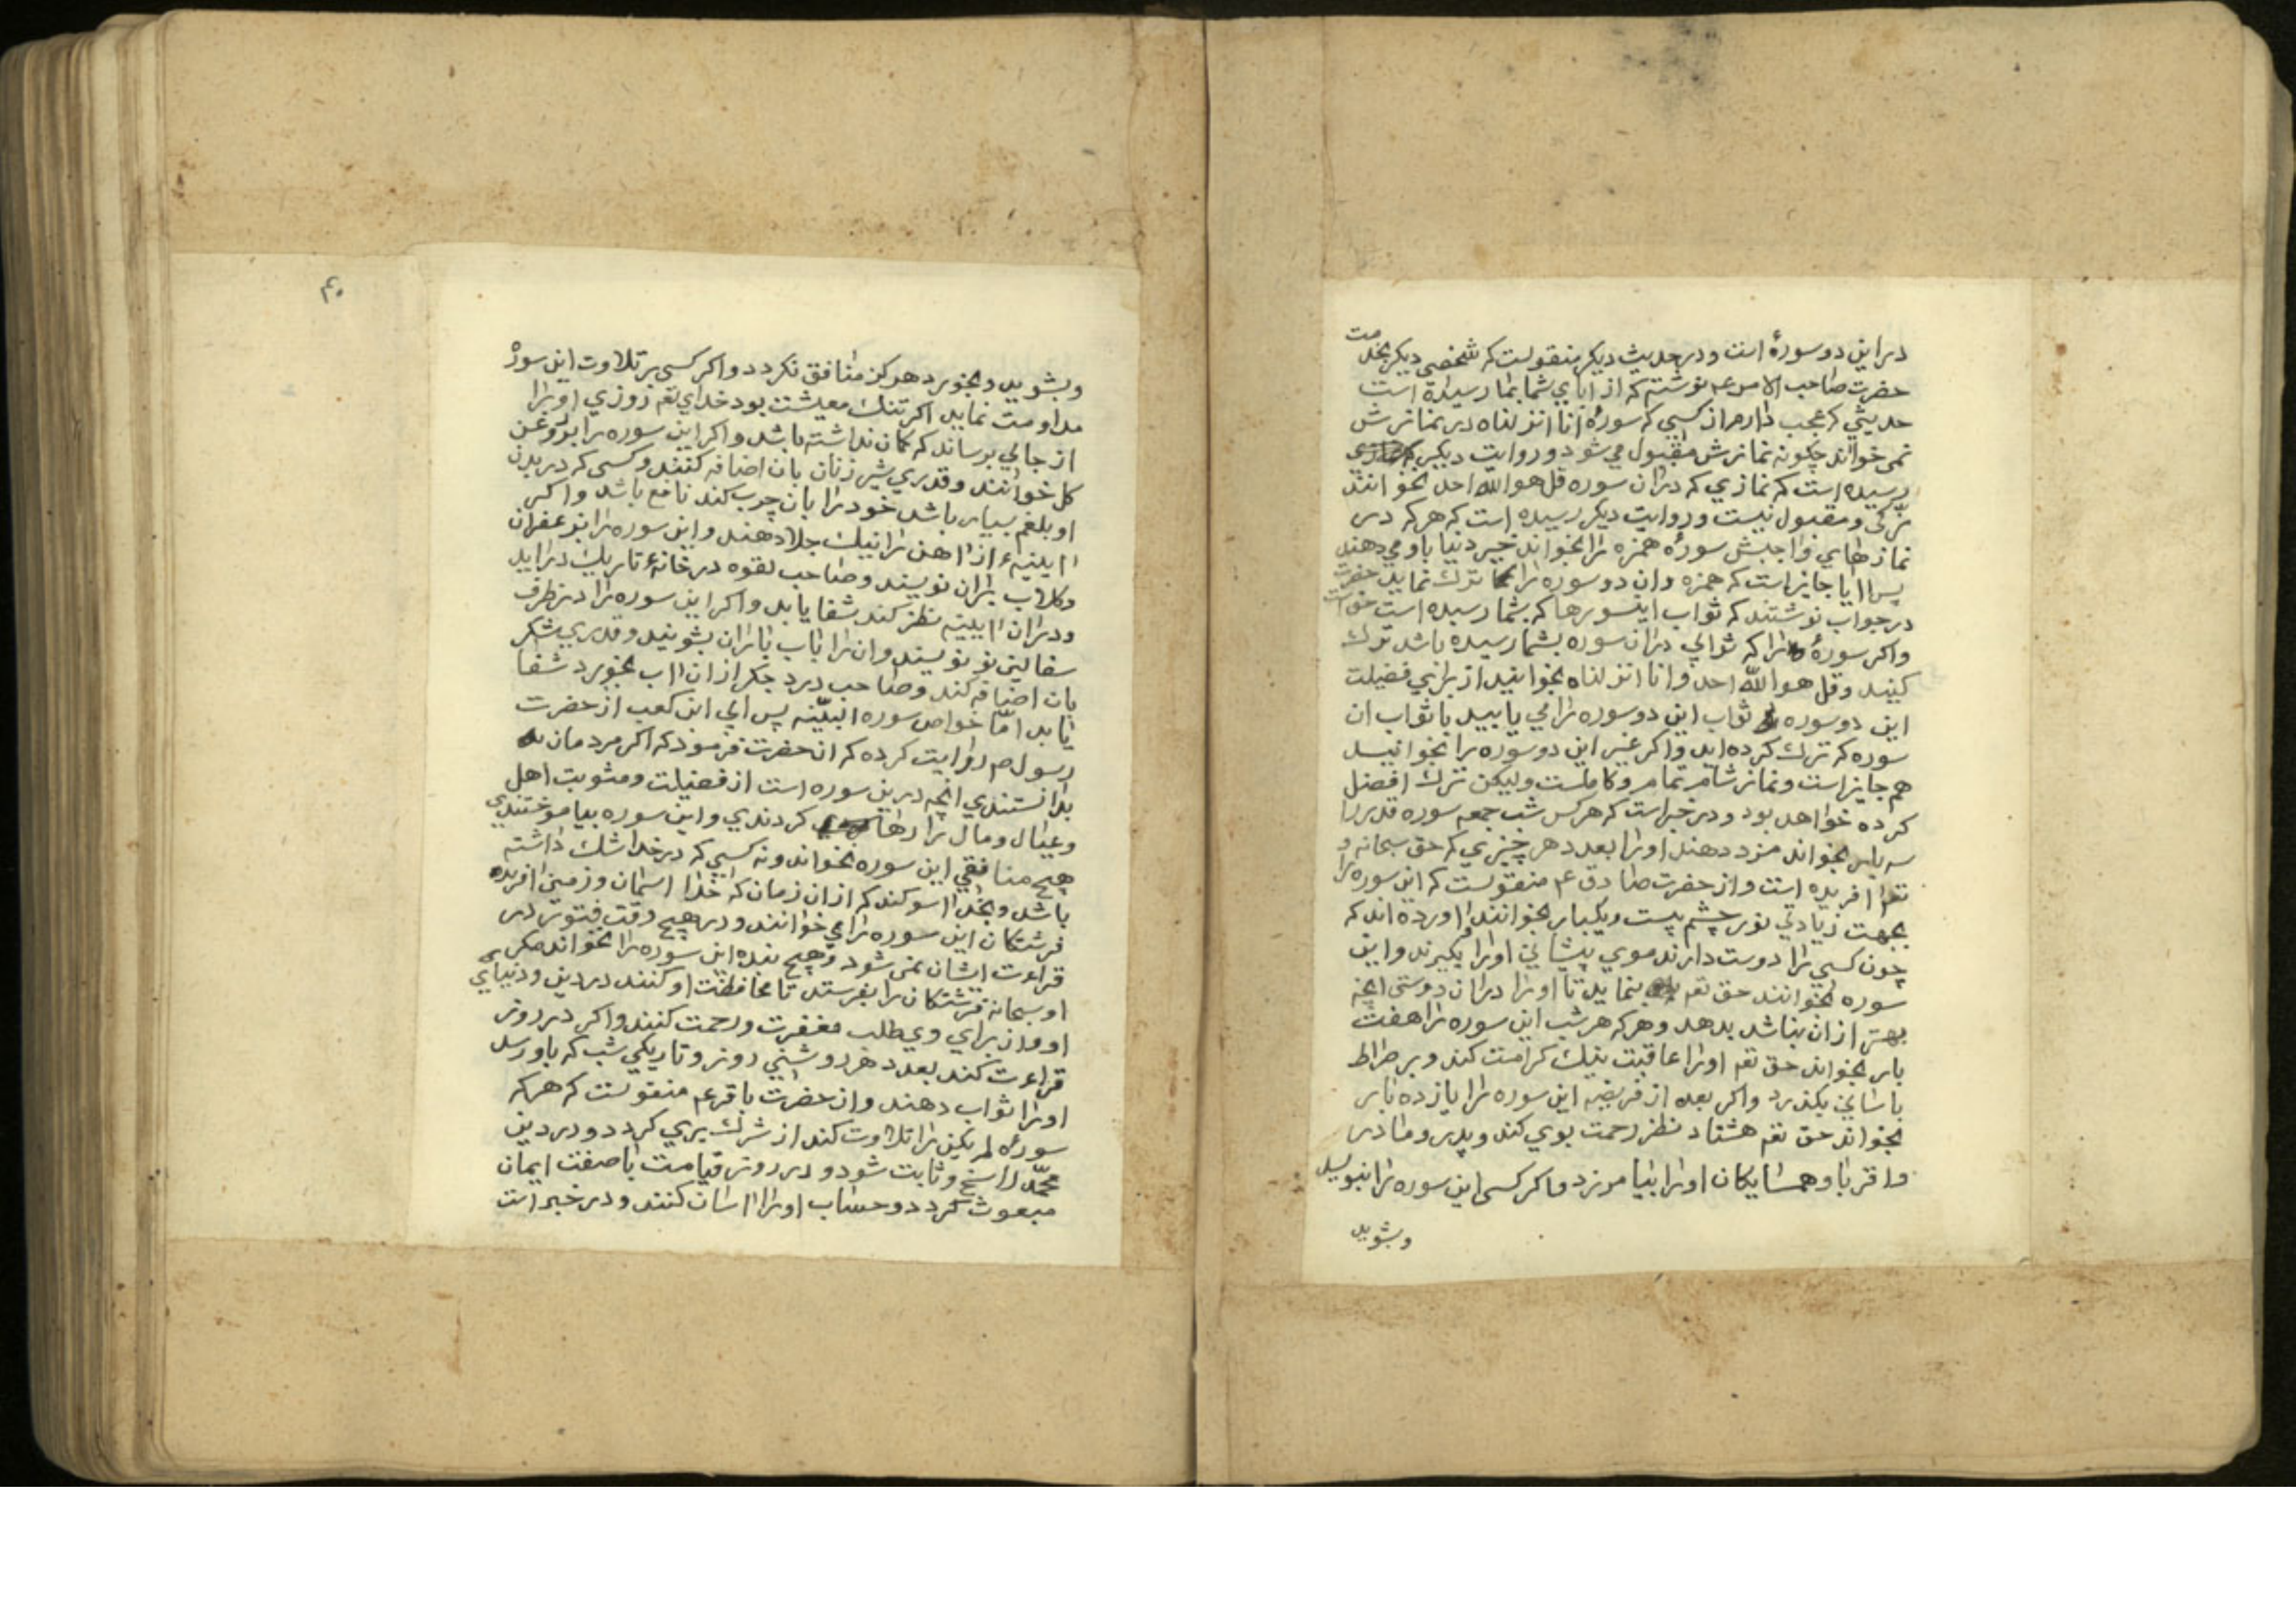 در این دو سورهٔ است و در حدیث دیکر منقولست که شخصی دیکر بخدمت
حضرت صاحب الامر عم نوشته که از ابای شما بما رسیده است
حدیثی که عجب دارم از کسی که سورهٔ انا انزلناه در نمازش
نمی خواند چکونه نمازش مقبول می شود و روایت دیکر
رسیده است که نمازی که در ان سوره قل هو الله احد نخوانند
نزکی و مقبول نیست و روایت دیکر رسیده است که هر که در
نمازهای واجبش سورهٔ همزه را بخواند خیر دنیا باو می دهند
پس ایا جایز است که همزه و ان دو سوره را ترک نماید حضرت
در جواب نوشتند که ثواب این سورها که بشما رسیده است حق است
و اکر سورهٔ را که ثوابی در ان سوره بشما رسیده باشد ترک
کنید و قل هو الله احد و انا انزلناه بخوانید از برای فضیلت
این دو سوره ثواب این دو سوره را می یابید با ثواب ان
سوره که ترک کرده اید و اکر غیر این دو سوره را بخوانید
هم جایز است و نماز شما تمام و کاملست ولیکن ترک افضل
کرده خواهد بود و در خبر است که هر کس شب جمعه سوره قدر را
سه بار بخواند مزد دهند او را بعدد هر چیزی که حق سبحانه و
تعم افریده است و از حضرت صادق عم منقولست که این سوره را
بجهت زیادتی نور چشم بیست و یکبار بخوانند و اورده اند که
چون کسی را دوست دارند موی پیشانی او را بکیرند و این
سوره بخوانند حق تعم بنماید تا او را در ان دوستی انچه
بهتر از ان بباشد بدهد و هر که هر شب این سوره را هفت
بار بخواند حق تعم او را عاقبت نیک کرامت کند و بر صراط
باسانی بکذرد و اکر بعد از فریضه این سوره را یازده بار
بخواند حق تعم هشتاد نظر رحمت بوی کند و پدر و مادر
و اقربا و همسایکان او را بیامرزد و اکر کسی این سوره را بنویسد
و بشوید
۴۰
و بشوید و بخورد هرکز منافق نکردد و اکر کسی بر تلاوت این سوره
مداومت نماید اکر تنک معیشت بود خدای تعم روزی او را
از جائی برساند که کمان نداشته باشد و اکر این سوره را بر روغن
کل خوانند و قدری شیر زنان بان اضافه کنند و کسی که در بدن
او بلغم بسیار باشد خود را بان چرب کند نافع باشد و اکر
ایینهٔ از اهن را نیک جلا دهند و این سوره را بزعفران
و کلاب بران نویسند و صاحب لقوه در خانهٔ تاریک دراید
و در ان ایینه نظر کند شفا یابد و اکر این سوره را در ظرف
سفالین نو نویسند و ان را باب باران بشویند و قدری شکر
بان اضافه کند و صاحب درد جکر از ان اب بخورد شفا
یابد امّا خواص سوره البیّنه پس ابی ابن کعب از حضرت
رسول ص روایت کرده که ان حضرت فرمود که اکر مردمان
بدانستندی انچه درین سوره است از فضیلت و مثوبت اهل
و عیال و مال را رها کردندی و این سوره بیاموختندی
هیچ منافقی این سوره نخواند و نه کسی که در خدا شک داشته
باشد و بخدا سوکند که از ان زمان که خدا اسمان و زمین افریده
فرشتکان این سوره را می خوانند و در هیچ وقت فتور در
قراءت ایشان نمی شود و هیچ بنده این سوره را نخواند مکر
او سبحانه فرشتکان را بفرستد تا محافظت او کنند در دین و دنیای
او و از برای وی طلب مغفرت و رحمت کنند و اکر در روز
قراءت کند بعدد هر روشنی روز و تاریکی شب که باو رسد
او را ثواب دهند و از حضرت باقر عم منقولست که هر که
سورهٔ لم یکن را تلاوت کند از شرک بری کردد و در دین
محمّد راسخ و ثابت شود و در روز قیامت با صفت ایمان
مبعوث کردد و حساب او را اسان کنند و در خبر است